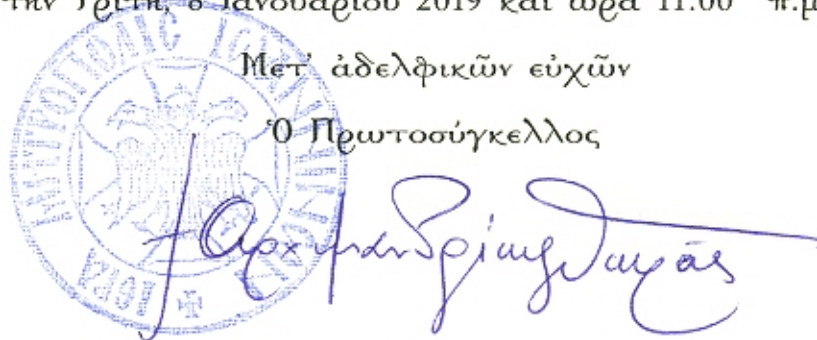 την Τρίτη, 8 Ιανουαρίου 2019 και ώρα 11.00 π.μ
Μετ' ἀδελφικῶν εὐχῶν
Ὁ Πρωτοσύγκελλος
ΙΕΡΑ ΜΗΤΡΟΠΟΛΙΣ ΙΩΑΝΝΙΝΩΝ
Αρχιμανδρίτης Θωμάς